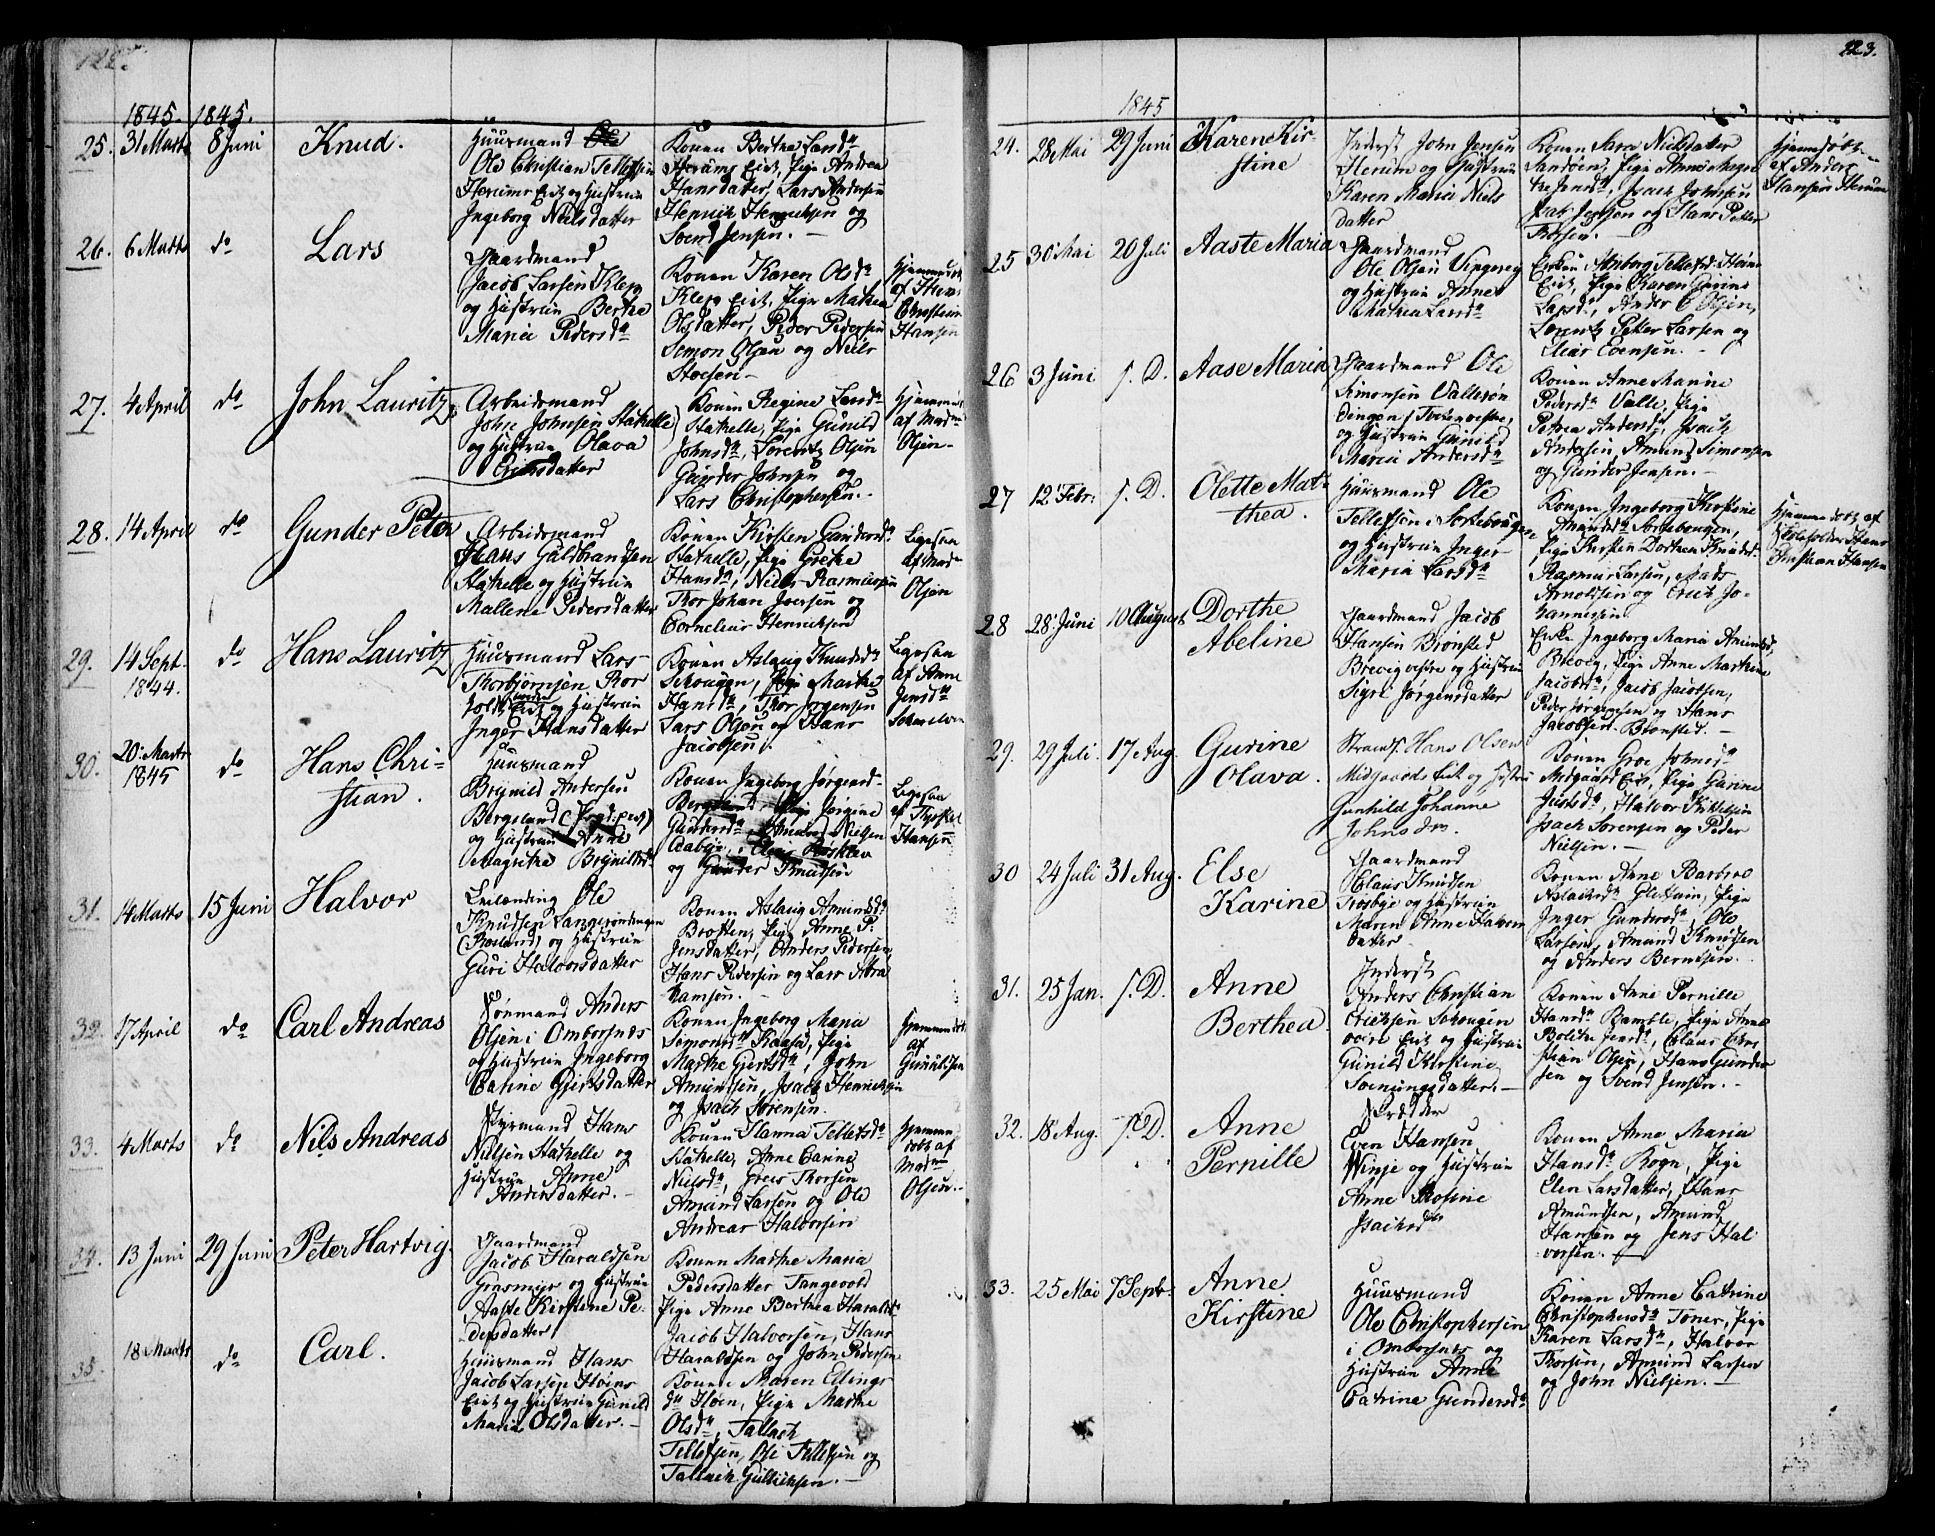 122.
1845. 1845.
25. 31 Marts 8 Juni Knud.
Huusmand
Ole Christian Tellefsen
Herums Eie og Hustrue
Ingeborg Nielsdatter
Konen Berthe Larsdr
Herums Eie, Pige Andrea
Hansdatter, Lars Andersen
Henrik Henriksen og
Svend Jensen.
26. 6 Marts do Lars
Gaardmand
Jacob Larsen Klep
og Hustrue Berthe
Maria Pedersdr
Konen Karen Olsdr
Klep Eie, Pige Mathea
Olsdatter, Peder Pedersen
Simon Olsen og Niels
Hjemmedøbt
af Hans
Christian
Hansen
27. 4 April do John Lauritz
Arbeidsmand
John Johnsen Stathelle
og Hustrue Olava
Erichsdatter
Konen Regine Larsdr
Stathelle, Pige Gunild
Johnsdr, Lorentz Olsen
Gunder Johnsen og
Lars Christophersen.
Hjemmed.
af Madme
Olsen
28. 14 April do Gunder Peter
Arbeidsmand
Hans Guldbrandsen
Stathelle og Hustrue
Mallene Pedersdatter
Konen Kirsten Gundersdr
Stathelle, Pige Grethe
Hansdr, Niels Rasmussen
Thor Johan Iversen og
Cornelius Henriksen
Ligesaa
af Madme
Olsen
29. 14 Sept. 1844. do Hans Lauritz
Huusmand Lars
Thorbjørnsen Ror
holdt Eie og Hustrue
Inger Hansdatter
Konen Aslaug Knudsdr
Schougen, Pige Marthe
Hansdr, Thor Jørgensen
Lars Olsen og Hans
Jacobsen.
Ligesaa
af Anne
Jensdr
30. 20 Marts 1845 do Hans Christian.
Huusmand
Brynild Andersen
Bergeland
og Hustrue Anne
Magrethe Brynildsdr
Konen Ingeborg Jørgensdr
Bergland, Pige Jørgine
Gundersdr Amund Nielsen
og Gunder Knudsen
Ligesaa
af Thyckel
Hansen
31. 14 Marts 15 Juni Halvor
Leilænding Ole
Knudsen Langrønningen
(Rosland) og Hustrue
Guri Halvorsdatter
Konen Aslaug Amundsdr
Brotten, Pige Anne P.
Jensdatter, Anders Pedersen
Hans Pedersen og Lars Abra
hamsen.
32. 17 April do Carl Andreas
Sømand Anders
Olsen i Omborsnes
og Hustrue Ingeborg
Cathrine Giertsdatter
Konen Ingeborg Maria
Simonsdr Raasa, Pige
Marthe Giertsdr, John
Amundsen, Isach Henrichsen
og Isach Sørensen.
Hjemmedøbt
af
33. 4 Marts do Nils Andreas
Styrmand Hans
Nielsen Stathelle og
Hustrue Anne
Andersdatter.
Konen Hanna Tellefsdr
Stathelle, Anne Carine
Nielsdr, Grers Thorsen
Amund Larsen og Ole
Andreas Halvorsen
Hjemme
døbt af
Madme
Olsen.
34. 13 Juni 29 Juni Peter Hartvig.
Gaardmand
Jacob Haraldsen
Grasmyr og Hustrue
Aaste Kirstine Pe-
dersdatter
Konen Marthe Maria
Pedersdatter Tangevold
Pige Anne Berthea Haraldsdr
Jacob Halvorsen, Hans
Haraldsen og John Pedersen
35. 18 Marts do Carl.
Huusmand Hans
Jacob Larsen Høens
Eie og Hustrue Gunild
Maria Olsdatter.
Konen Maren Ellings
dr Høen, Pige Marthe
Olsdr, Tallack
Tellefsen, Ole Tellefsen og
Tallack Gullichsen.
123.
1845
24. 28 Mai 29 Juni Karen Kirstine
Inderst John Jensen
Herum og Hustrue
Karen Maria Niels
datter
Konen Sara Nielsdatter
Sandøen, Pige Anne Magre
the Jensdr, Isach Johnsen
Isak Jensen og Hans Petter
Thorsen.
Hjemmedøbt
af Anders
Hansen Herum
25 30 Mai 20 Juli Aaste Maria
Gaardmand
Ole Olsen Vingereg
og Hustrue Anne
Mathea Larsdr
Enken Anborg Tellefsd. Høens
Eie, Pige Karen Carine
Larsdr, Anders C Olsen,
Lorentz Petter Larsen og
Elias Evensen.
26 3 Juni s. D. Aase Maria
Gaardmand Ole
Simonsen Vallesøn
dingen
og Hustrue Gunild
Maria Andersdr
Konen Anne Marine
Pedersdr Valle, Pige
Petrea Andersdr, Isach
Andersen, Amund Simonsen
og Gunder Jensen.
27 12 Febr. s. D. Olette Mathea.
Huusmand Ole
Tellefsen i Sortebougen
og Hustrue Inger
Maria Larsdr
Konen Ingeborg Kirstine
Amundsdr Sortebougen,
Pige Kirsten Dorthea Knudsd.
Rasmus Larsen, Mads
Arnoldsen og Erich Jo-
hannesen
Hjemmedøbt af
Skoleholder Hans
Christian Hansen
28 28 Juni 10 August Dorthe Abeline
Gaardmand Jacob
Hansen Brønsted
Brevig vestre og Hustrue
Sigri Jørgensdatter
Enke Ingeborg Maria Amundsd.
Brevig, Pige Anne Marthine
Jacobsdr, Jacob Jacobsen,
Peder Jørgensen og Hans
Jacobsen Brønsted.
29. 29 Juli 17 Aug. Gurine Olava.
Strands. Hans Olsen
Midgaards Eie og Hustrue
Gunhild Johanne
Johnsdr.
Konen Groe Johnsdr
Midgaard Eie, Pige Karine
Justsdr, Halvor Kittilsen
Isach Sørensen og Peder
Nielsen.
30 24 Juli 31 Aug. Else Karine
Gaardmand
Claus Knudsen
Trosbye og Hustrue
Maren Anne Halvors
datter
Konen Anne Barbroe
Aslachsdr, Pige
Inger Gundersdr, Ole
Larsen, Amund Knudsen
og Anders Berntsen.
31. 25 Jan. s. D. Anne Berthea
Inderst
Anders Christian
Erichsen Schougen
øvre Eie og Hustrue
Gunild Kirstine
Svenungsdatter.
Konen Anne Pernille
Hansdr Bamble, Pige Anne
Bolette Jensdr, Claus Chri
stian Olsen, Hans Gunder
sen og Svend Jensen.
32. 18 Aug. s. D. Anne Pernille
Skrædder
Even Hansen
Winje og Hustrue
Anne Rosine
Isachsdr
Konen Anne Maria
Hansdr Rogn, Pige
Elen Larsdatter, Hans
Amundsen, Amund
Hansen og Jens Hal
vorsen.
33. 25 Mai 7 Septr. Anne Kirstine
Huusmand
Ole Christophersen
i Omborsnes og
Hustrue Anne
Catrine Gundersdr
Konen Anne Catrine
Christophersdr Toner, Pige
Karen Larsdr, Halvor
Thorsen, Amund Larsen
og John Nielsen.